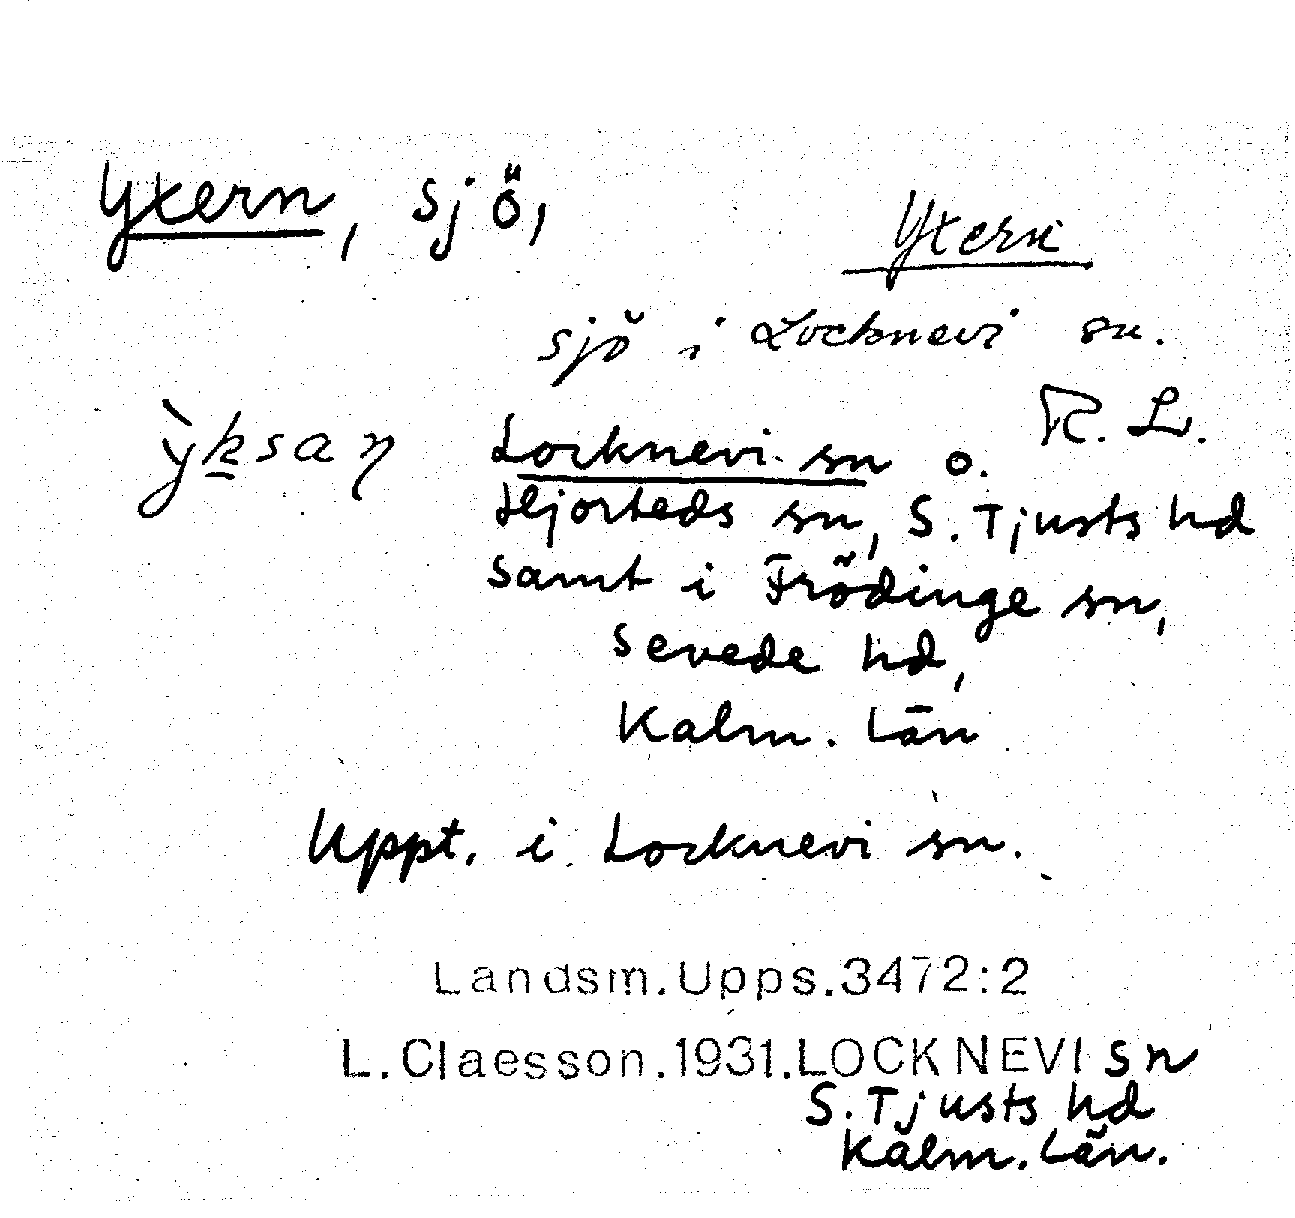 Yxern, sjö,
Yxern
sjö i Locknevi sn.
R. L.
ỳksaŋ Locknevi sn o.
Hjorteds sn, S. Tjusts hd
samt i Frödinge sn,
Sevede hd,
Kalm. län
Uppt. i Locknevi sn.
Landsm.Upps.3472:2
L.Claesson.1931.LOCKNEVI sn
S. Tjusts hd
Kalm. län.